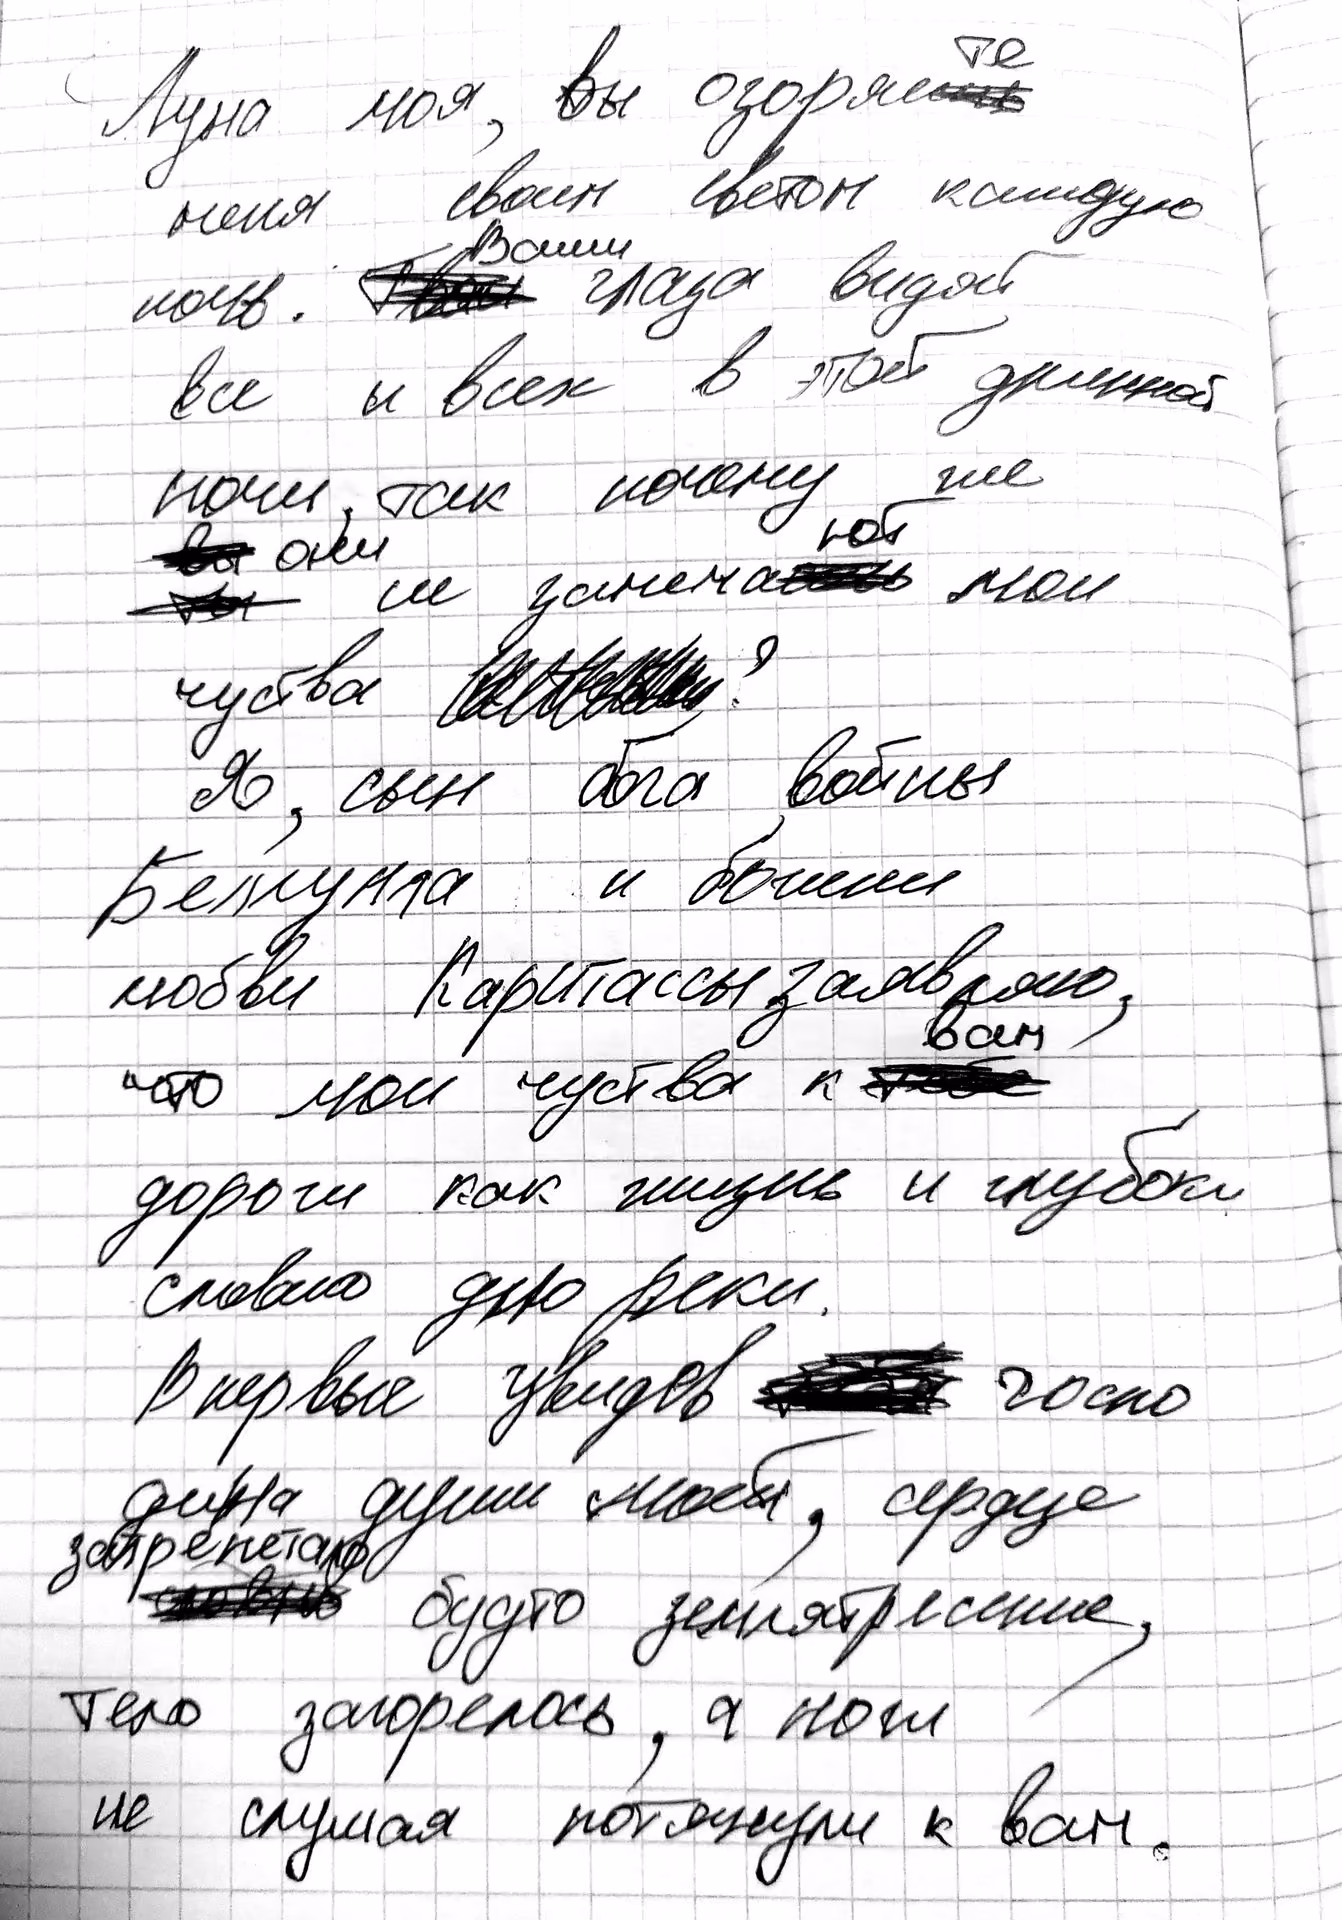 Луна моя, вы озоряете
меня своим светом каждую
ночь. Ваши глаза видят
все и всех в этой длинной
ночи, так почему же
они не замечают мои
чуства ?
Я, сын бога войны
Беллунта и богини
любви Каритассы, заявляю,
что мои чуства к вам
дороги как жизнь и глубоки
словно дно реки.
Впервые увидев госпо
дина души моей, сердце
затрепетало будто землятресение,
тело загорелось, а ноги
не слушая потянули к вам.